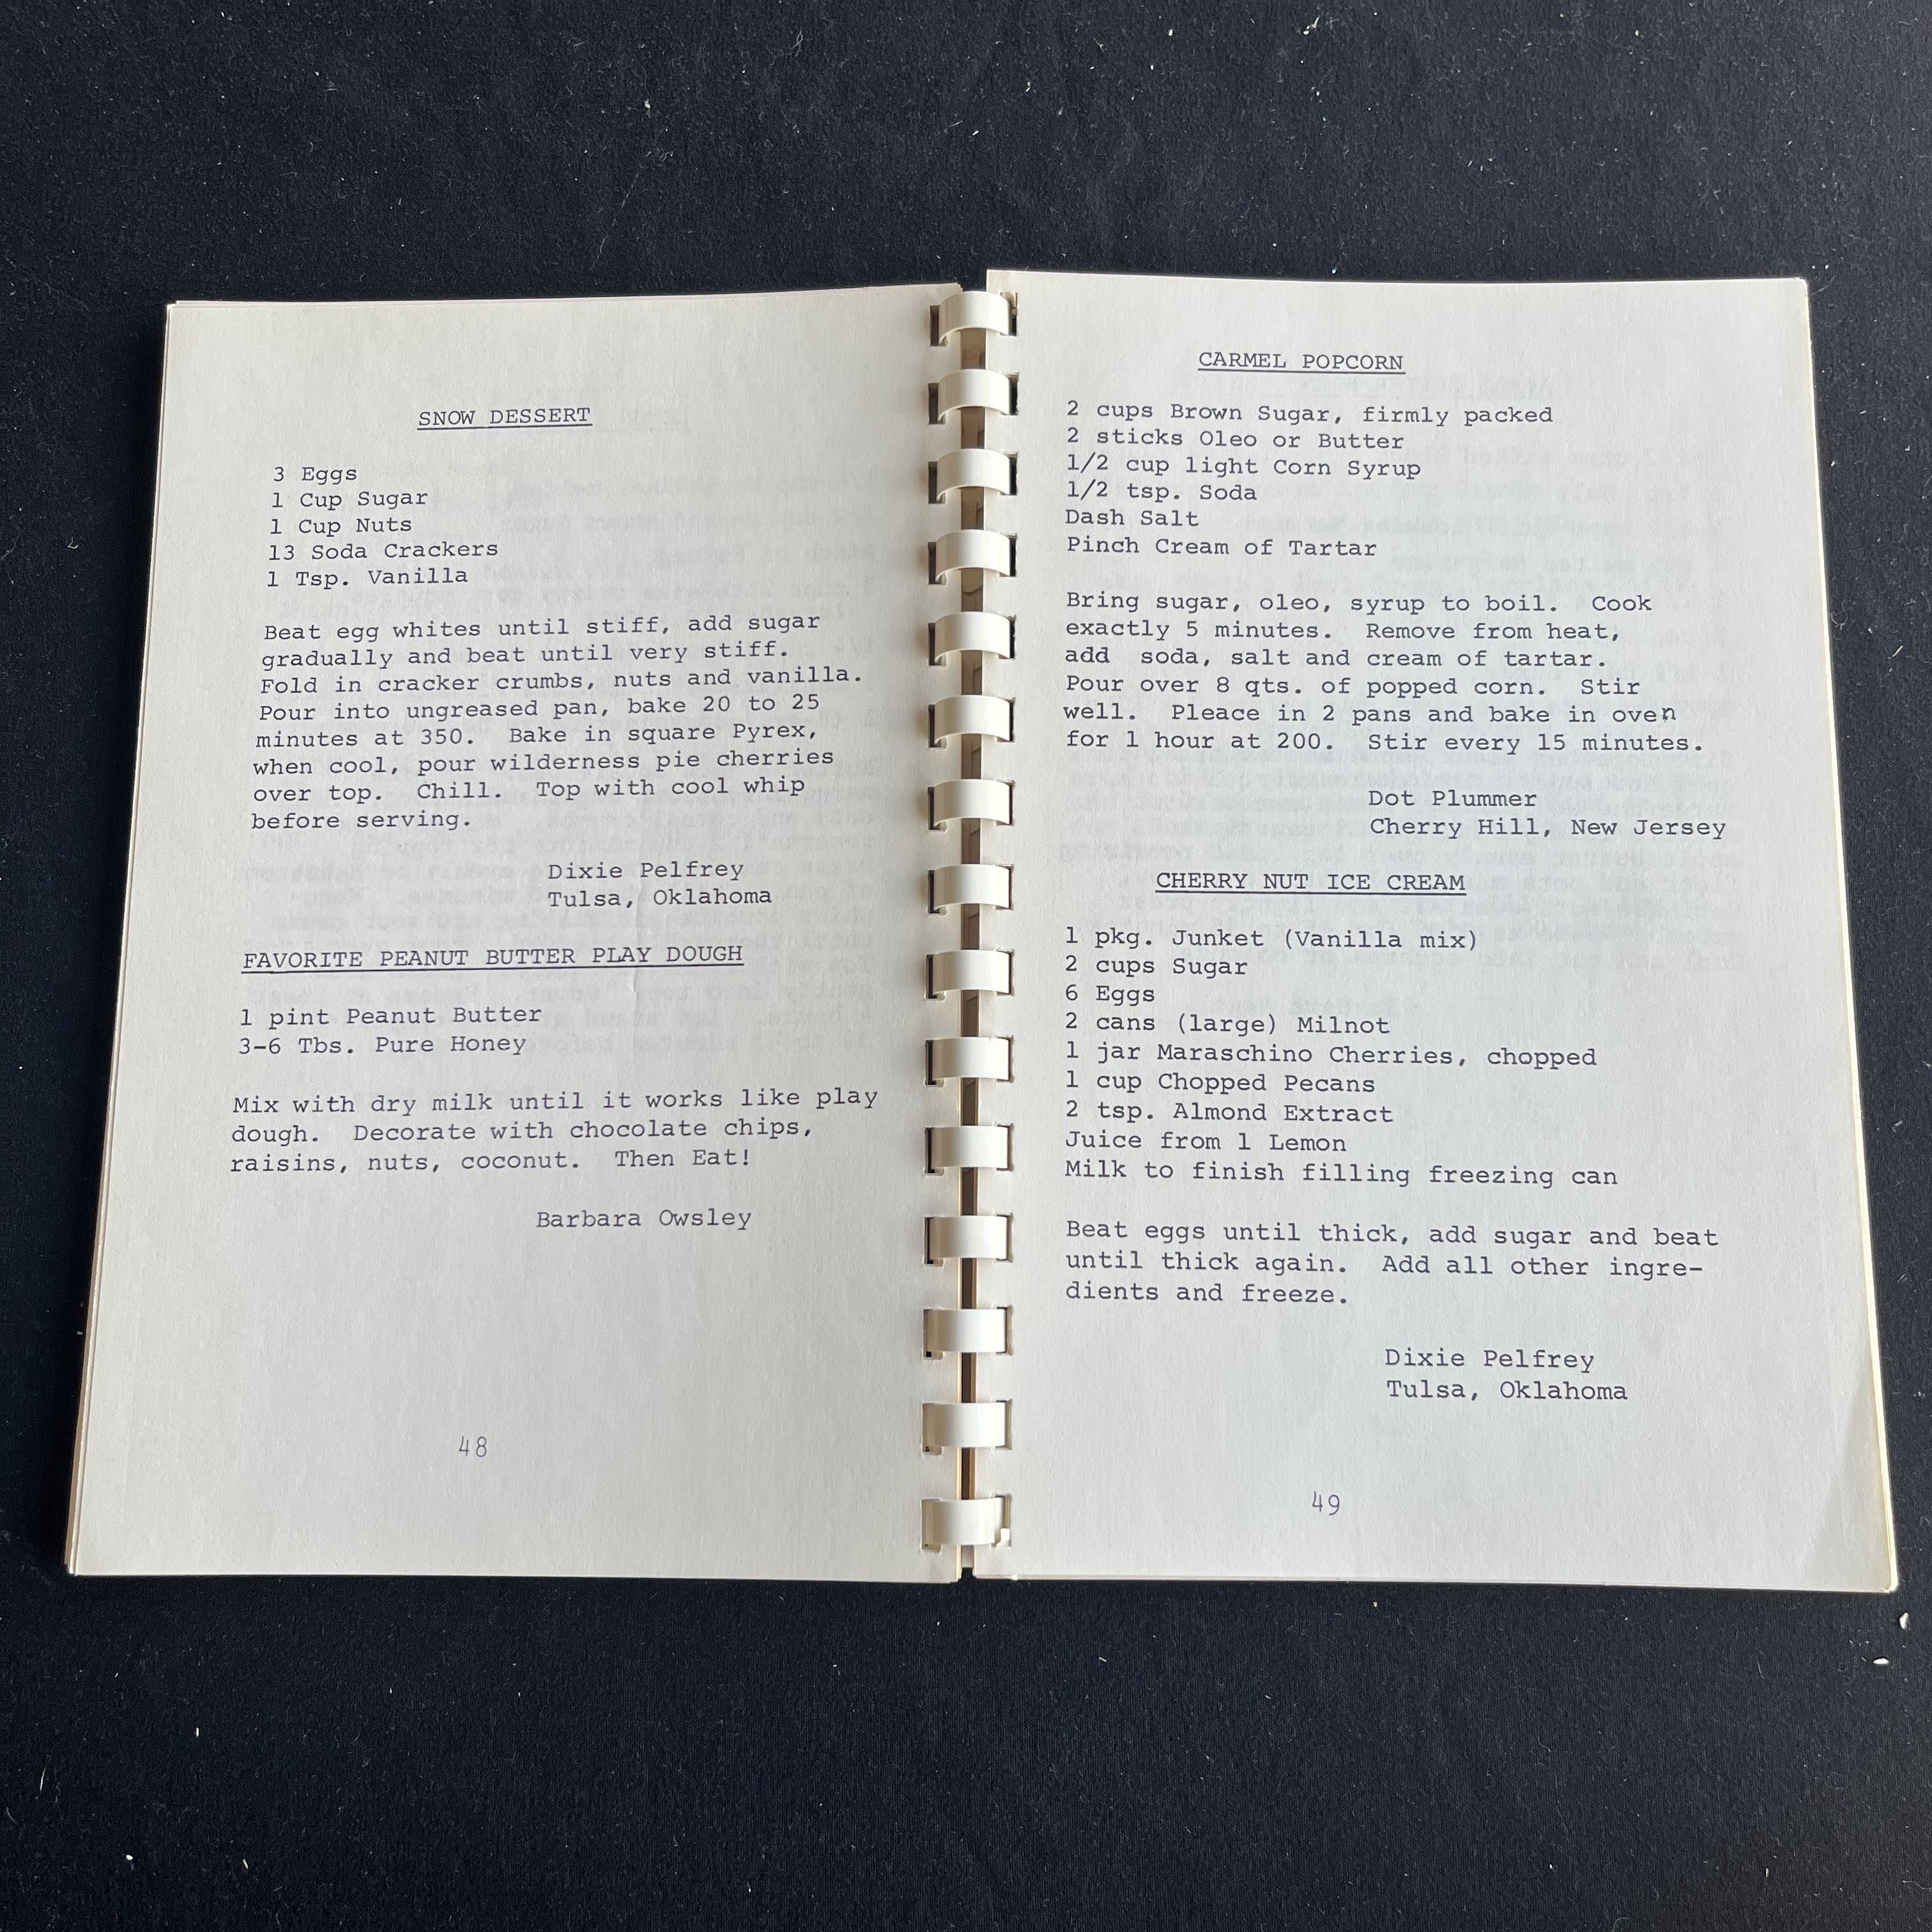 SNOW DESSERT
3 Eggs
1 Cup Sugar
1 Cup Nuts
13 Soda Crackers
1 Tsp. Vanilla
Beat egg whites until stiff, add sugar
gradually and beat until very stiff.
Fold in cracker crumbs, nuts and vanilla.
Pour into ungreased pan, bake 20 to 25
minutes at 350. Bake in square Pyrex,
when cool, pour wilderness pie cherries
over top. Chill. Top with cool whip
before serving.
Dixie Pelfrey
Tulsa, Oklahoma
FAVORITE PEANUT BUTTER PLAY DOUGH
1 pint Peanut Butter
3-6 Tbs. Pure Honey
Mix with dry milk until it works like play
dough. Decorate with chocolate chips,
raisins, nuts, coconut. Then Eat!
Barbara Owsley
48
CARMEL POPCORN
2 cups Brown Sugar, firmly packed
2 sticks Oleo or Butter
1/2 cup light Corn Syrup
1/2 tsp. Soda
Dash Salt
Pinch Cream of Tartar
Bring sugar, oleo, syrup to boil. Cook
exactly 5 minutes. Remove from heat,
add soda, salt and cream of tartar.
Pour over 8 qts. of popped corn. Stir
well. Pleace in 2 pans and bake in oven
for 1 hour at 200. Stir every 15 minutes.
Dot Plummer
Cherry Hill, New Jersey
CHERRY NUT ICE CREAM
1 pkg. Junket (Vanilla mix)
2 cups Sugar
6 Eggs
2 cans (large) Milnot
1 jar Maraschino Cherries, chopped
1 cup Chopped Pecans
2 tsp. Almond Extract
Juice from 1 Lemon
Milk to finish filling freezing can
Beat eggs until thick, add sugar and beat
until thick again. Add all other ingre-
dients and freeze.
Dixie Pelfrey
Tulsa, Oklahoma
49